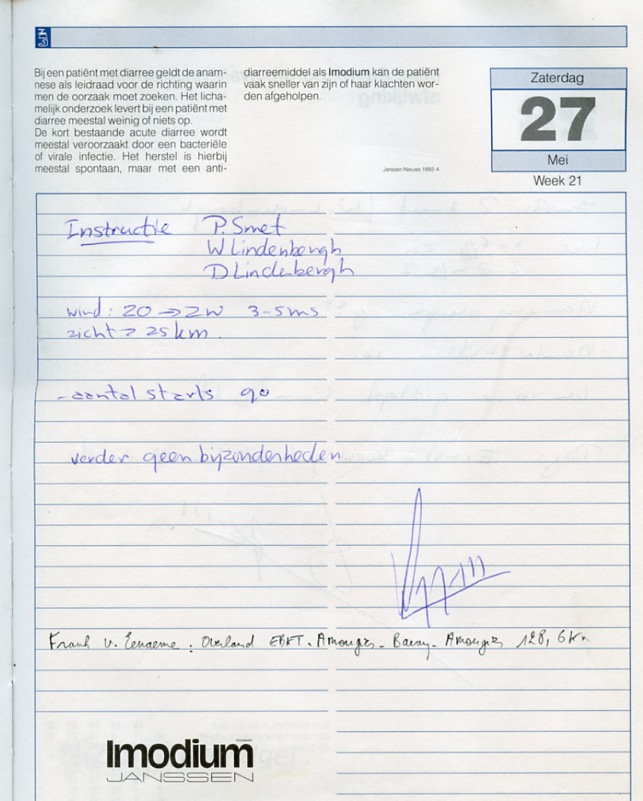 Bij een patiënt met diarree geldt de anam-
nese als leidraad voor de richting waarin
men de oorzaak moet zoeken. Het licha-
melijk onderzoek levert bij een patiënt met
diarree meestal weinig of niets op.
De kort bestaande acute diarree wordt
meestal veroorzaakt door een bacteriële
of virale infectie. Het herstel is hierbij
meestal spontaan, maar met een anti-
diarreemiddel als Imodium kan de patiënt
vaak sneller van zijn of haar klachten wor-
den afgeholpen.
Janssen Nieuws 1992-4
Zaterdag
27
Mei
Week 21
Instructie P. Smet
W Lindenbergh
D Lindenbergh
wind: ZO → ZW 3-5 ms
zicht > 25 km.
- aantal starts 90
verder geen bijzonderheden
Frank v. : Overland EBKT - Amougies - Bavay - Amougies 128,6 Km
Imodium
JANSSEN